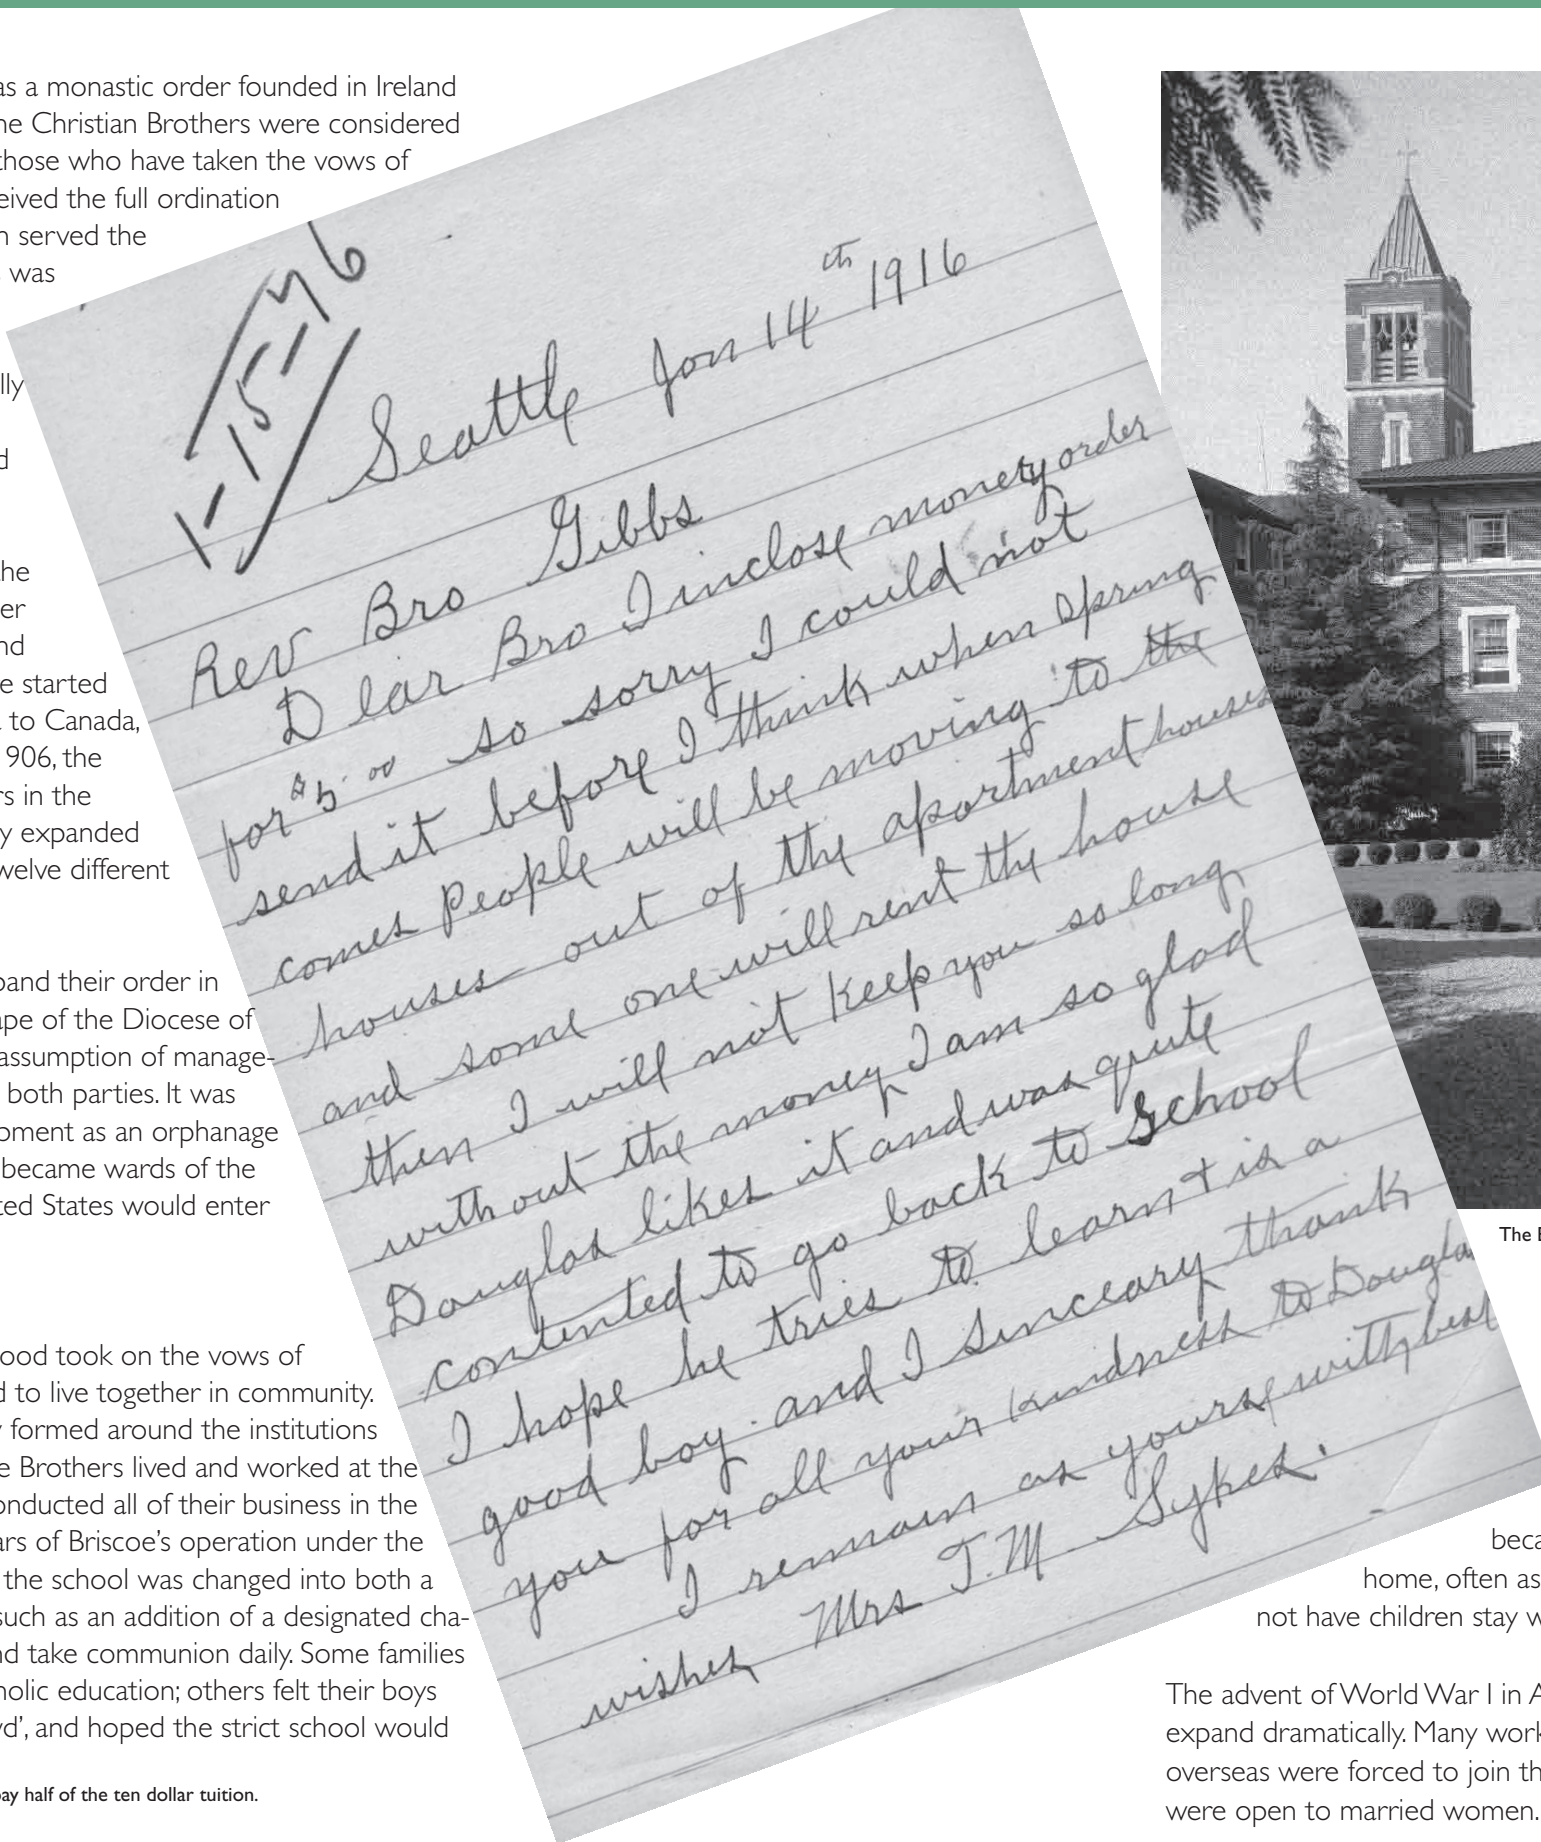 as a monastic order founded in Ireland
he Christian Brothers were considered
those who have taken the vows of
eived the full ordination
n served the
was
lly
d
the
er
nd
e started
to Canada,
906, the
rs in the
y expanded
welve different
pand their order in
ape of the Diocese of
assumption of manage-
both parties. It was
opment as an orphanage
became wards of the
ted States would enter
ood took on the vows of
d to live together in community.
y formed around the institutions
e Brothers lived and worked at the
onducted all of their business in the
ars of Briscoe's operation under the
the school was changed into both a
such as an addition of a designated cha-
nd take communion daily. Some families
holic education; others felt their boys
d', and hoped the strict school would
pay half of the ten dollar tuition.
1-15-16
Seattle Jan 14th 1916
Rev Bro Gibbs
Dear Bro I inclose monety order
for $5.00 so sorry I could not
send it before I think when Spring
comes People will be moving to the
houses out of the apartment houses
and some one will rent the house
then I will not keep you so long
without the money I am so glad
Douglas likes it and was quite
contented to go back to School
I hope he tries to learn & is a
good boy. and I sinceary thank
you for all your kindness to Douglas
I remain as yourse with best
wishes Mrs T.M Sykes.
The B
beca
home, often as
not have children stay w
The advent of World War I in A
expand dramatically. Many work
overseas were forced to join th
were open to married women.